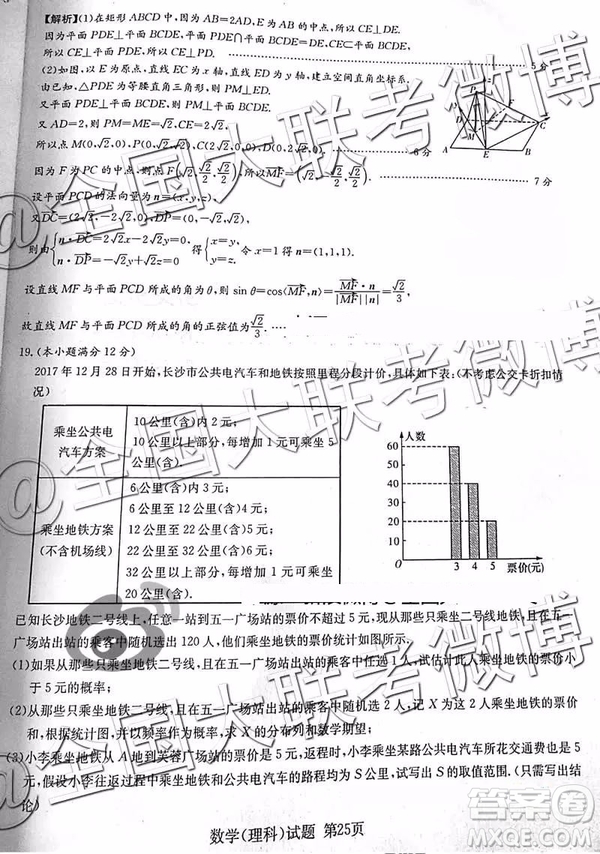 【解析】(1)在矩形ABCD中,因为AB=2AD,E为AB的中点,所以CE⊥DE.
因为平面PDE⊥平面BCDE,平面PDE∩平面BCDE=DE,CE⊂平面BCDE,
所以CE⊥平面PDE,所以CE⊥PD.
5分
(2)如图,以E为原点,直线EC为x轴,直线ED为y轴,建立空间直角坐标系.
由已知,△PDE为等腰直角三角形,所以PM⊥ED.
又平面PDE⊥平面BCDE,所以PM⊥平面BCDE.
又AD=2,则PM=ME=√2,CE=2√2.
所以点M(0,√2,0),P(0,√2,√2),C(2√2,0,0),D(0,2√2,0).
6分
因为F为PC的中点,则点F(√2,√2/2,√2/2),所以MF=(√2,-√2/2,√2/2).
7分
设平面PCD的法向量为n=(x,y,z),
又DC=(2√2,-2√2,0),DP=(0,-√2,√2),
则由{n·DC=2√2x-2√2y=0 n·DP=-√2y+√2z=0,得{x=y, y=z. 令x=1得n=(1,1,1).
设直线MF与平面PCD所成的角为θ,则sin θ=cos⟨MF,n⟩=MF·n/|MF||n|=√2/3,
故直线MF与平面PCD所成的角的正弦值为√2/3.
19.(本小题满分12分)
2017年12月28日开始,长沙市公共电汽车和地铁按照里程分段计价,具体如下表:(不考虑公交卡折扣情
况)
乘坐公共电
汽车方案
10公里(含)内2元;
10公里以上部分,每增加1元可乘坐5
公里(含).
乘坐地铁方案
(不含机场线)
6公里(含)内3元;
6公里至12公里(含)4元;
12公里至22公里(含)5元;
22公里至32公里(含)6元;
32公里以上部分,每增加1元可乘坐
20公里(含).
人数
60
50
40
30
20
10
0
3 4 5 票价(元)
已知长沙地铁二号线上,任意一站到五一广场站的票价不超过5元,现从那些只乘坐二号线地铁,且在五一
广场站出站的乘客中随机选出120人,他们乘坐地铁的票价统计如图所示.
(1)如果从那些只乘坐二号线地铁,且在五一广场站出站的乘客中任选1人,试估计此人乘坐地铁的票价小
于5元的概率;
(2)从那些只乘坐地铁二号线,且在五一广场站出站的乘客中随机选2人,记X为这2人乘坐地铁的票价
和,根据统计图,并以频率作为概率,求X的分布列和数学期望;
(3)小李乘坐地铁从A地到芙蓉广场站的票价是5元,返程时,小李乘坐某路公共电汽车所花交通费也是5
元,假设小李往返过程中乘坐地铁和公共电汽车的路程均为S公里,试写出S的取值范围.(只需写出结
论)
数学(理科)试题 第25页
@全国大联考微博
@全国大联考微博
@全国大联考微博
答案圈